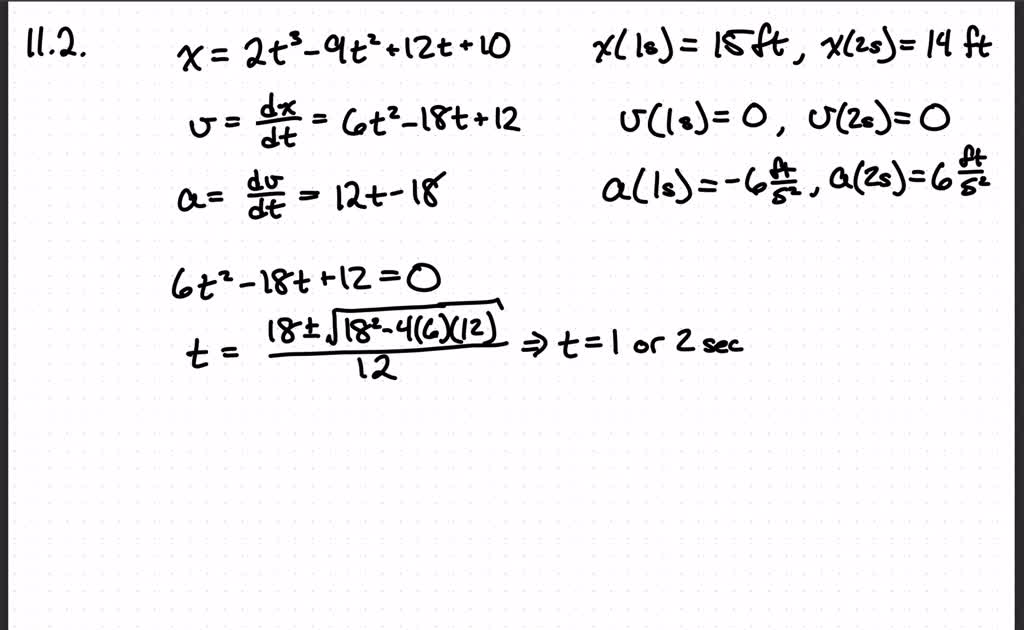 11.2.
x = 2t³ - 9t² + 12t + 10
x(1s) = 15ft, x(2s) = 14 ft
v = dx/dt = 6t² - 18t + 12
v(1s) = 0, v(2s) = 0
a = dv/dt = 12t - 18
a(1s) = -6 ft/s², a(2s) = 6 ft/s²
6t² - 18t + 12 = 0
t = (18 ± √(18² - 4(6)(12)))/12 ⇒ t = 1 or 2 sec